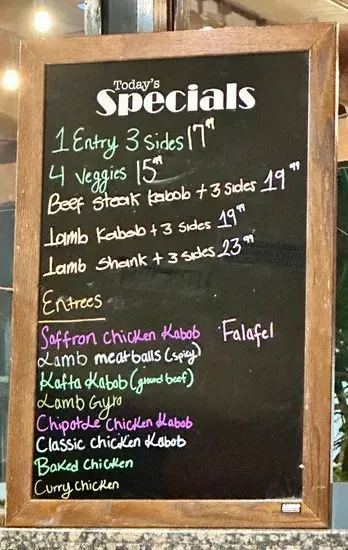 Today's
Specials
1 Entry 3 sides 17.99
4 veggies 15.99
Beef steak kabob + 3 sides 19.99
Lamb Kabob + 3 sides 19.99
Lamb Shank + 3 sides 23.99
Entrees
Saffron chicken Kabob Falafel
Lamb meatballs (spicy)
Kafta Kabob (ground beef)
Lamb Gyro
Chipotle Chicken Kabob
Classic chicken Kabob
Baked Chicken
Curry chicken